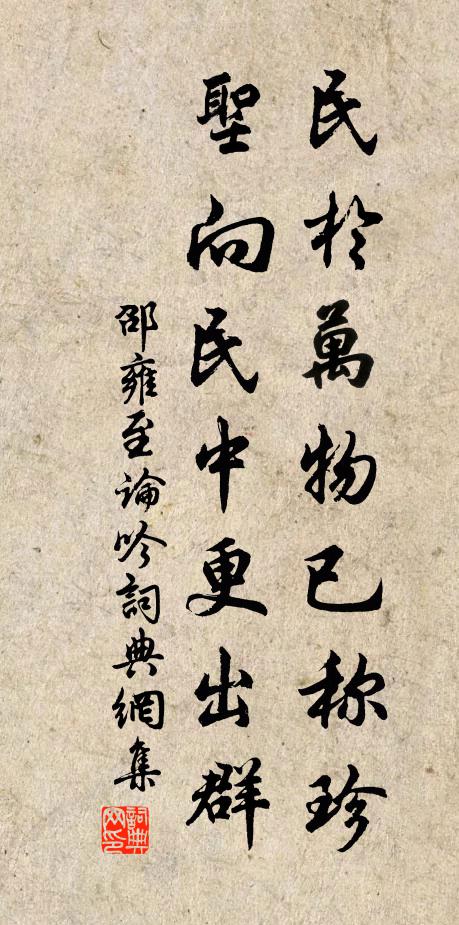 民於萬物已称珍
聖向民中更出群
邵雍至論吟詞典網集
詞典网印